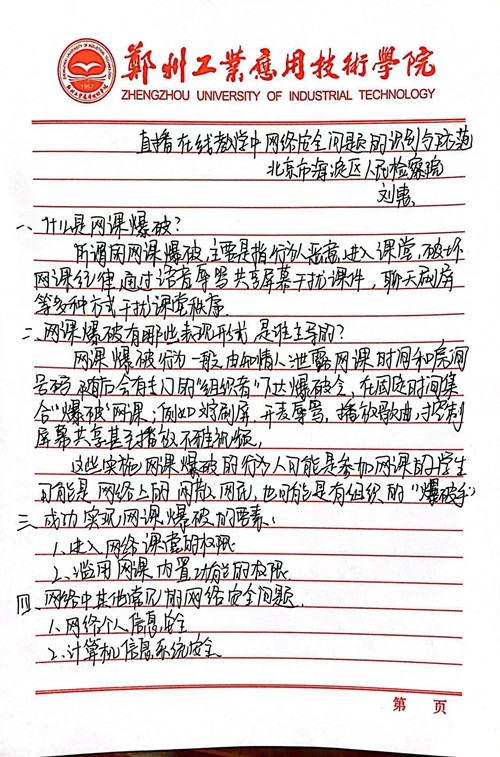 鄭州工業應用技術學院
ZHENGZHOU UNIVERSITY OF INDUSTRIAL TECHNOLOGY
直播在线教学中网络安全问题的识别与防范
北京市海淀区人民检察院
刘惠
一、什么是网课爆破?
所谓网课爆破,主要是指行为人恶意进入课堂,破坏
网课纪律,通过语音辱骂共享屏幕干扰课件,聊天刷屏
等多种方式干扰课堂秩序.
二、网课爆破有哪些表现形式,是谁主导的?
网课爆破行为一般由知情人泄露网课时间和房间
号码,随后会有专门的“组织者”下达爆破令,在固定时间集
合“爆破”网课;例如刷屏,开麦辱骂,播放歌曲,控制
屏幕共享甚至播放不雅视频,
这些实施网课爆破的行为人可能是参加网课的学生
可能是网络上的闲散网民,也可能是有组织的“爆破手”
三、成功实现网课爆破的要素:
1、进入网络课堂的权限
2、滥用网课内置功能的权限
四、网络中其他常见的网络安全问题.
1、网络个人信息安全
2、计算机信息系统安全
第 页